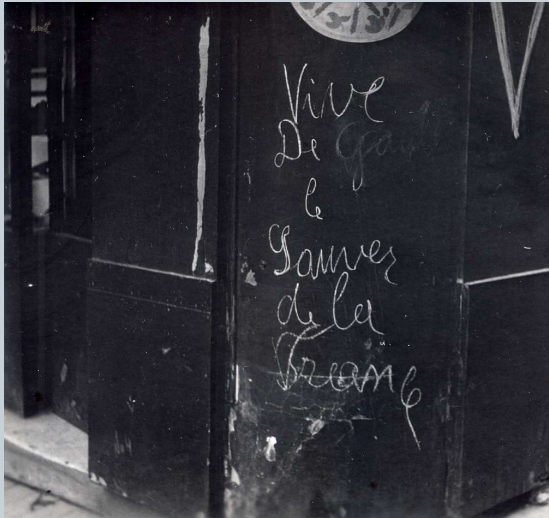 Vive
De Gaulle
le
Sauver
de la
France